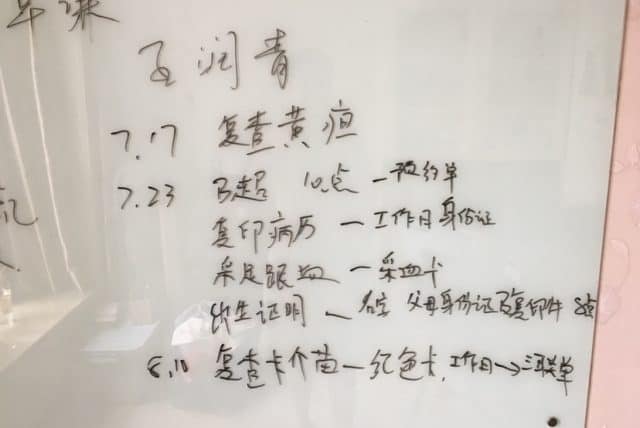 润青
7.17 复查黄疸
7.23 B超 10点 — 预约单
复印病历 — 工作日 身份证
采足跟血 — 采血卡
出生证明 — 名字 父母身份证及复印件
8.10 复查卡介苗 — 红色卡,工作日 → 三联单